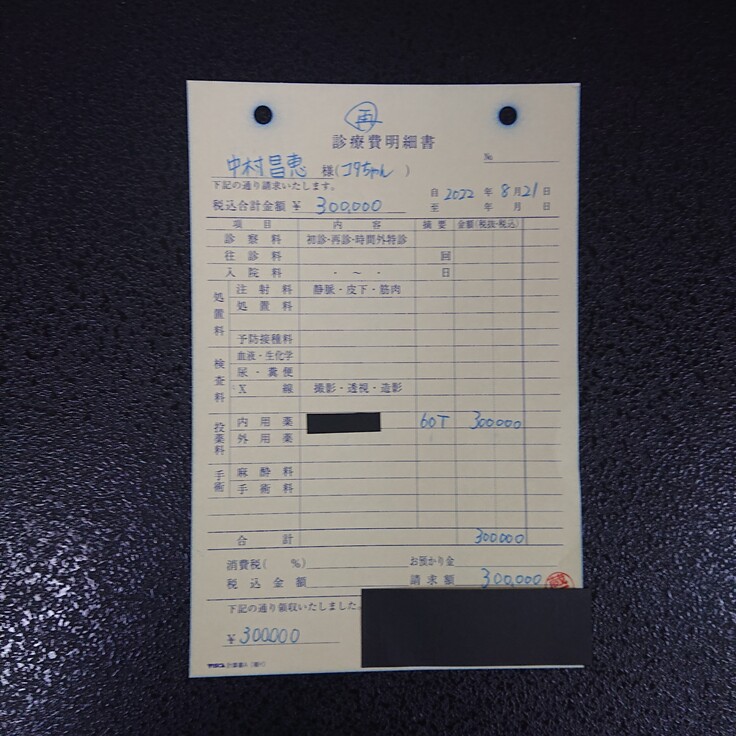 再
診療費明細書
№
中村昌恵 様(コタちゃん)
下記の通り請求いたします。
自 2022 年 8 月 21 日
税込合計金額 ¥ 300,000
至 年 月 日
項目 内容 摘要 金額(税抜・税込)
診察料 初診・再診・時間外特診
往診料 回
入院料 ・ ~ ・ 日
処置料
注射料 静脈・皮下・筋肉
処置料
予防接種料
検査料
血液・生化学
尿・糞便
X線 撮影・透視・造影
投薬料
内用薬 60T 300,000
外用薬
手術
麻酔料
手術料
合計 300,000
消費税( %) お預かり金
税込金額 請求額 300,000
下記の通り領収いたしました。
¥ 300,000